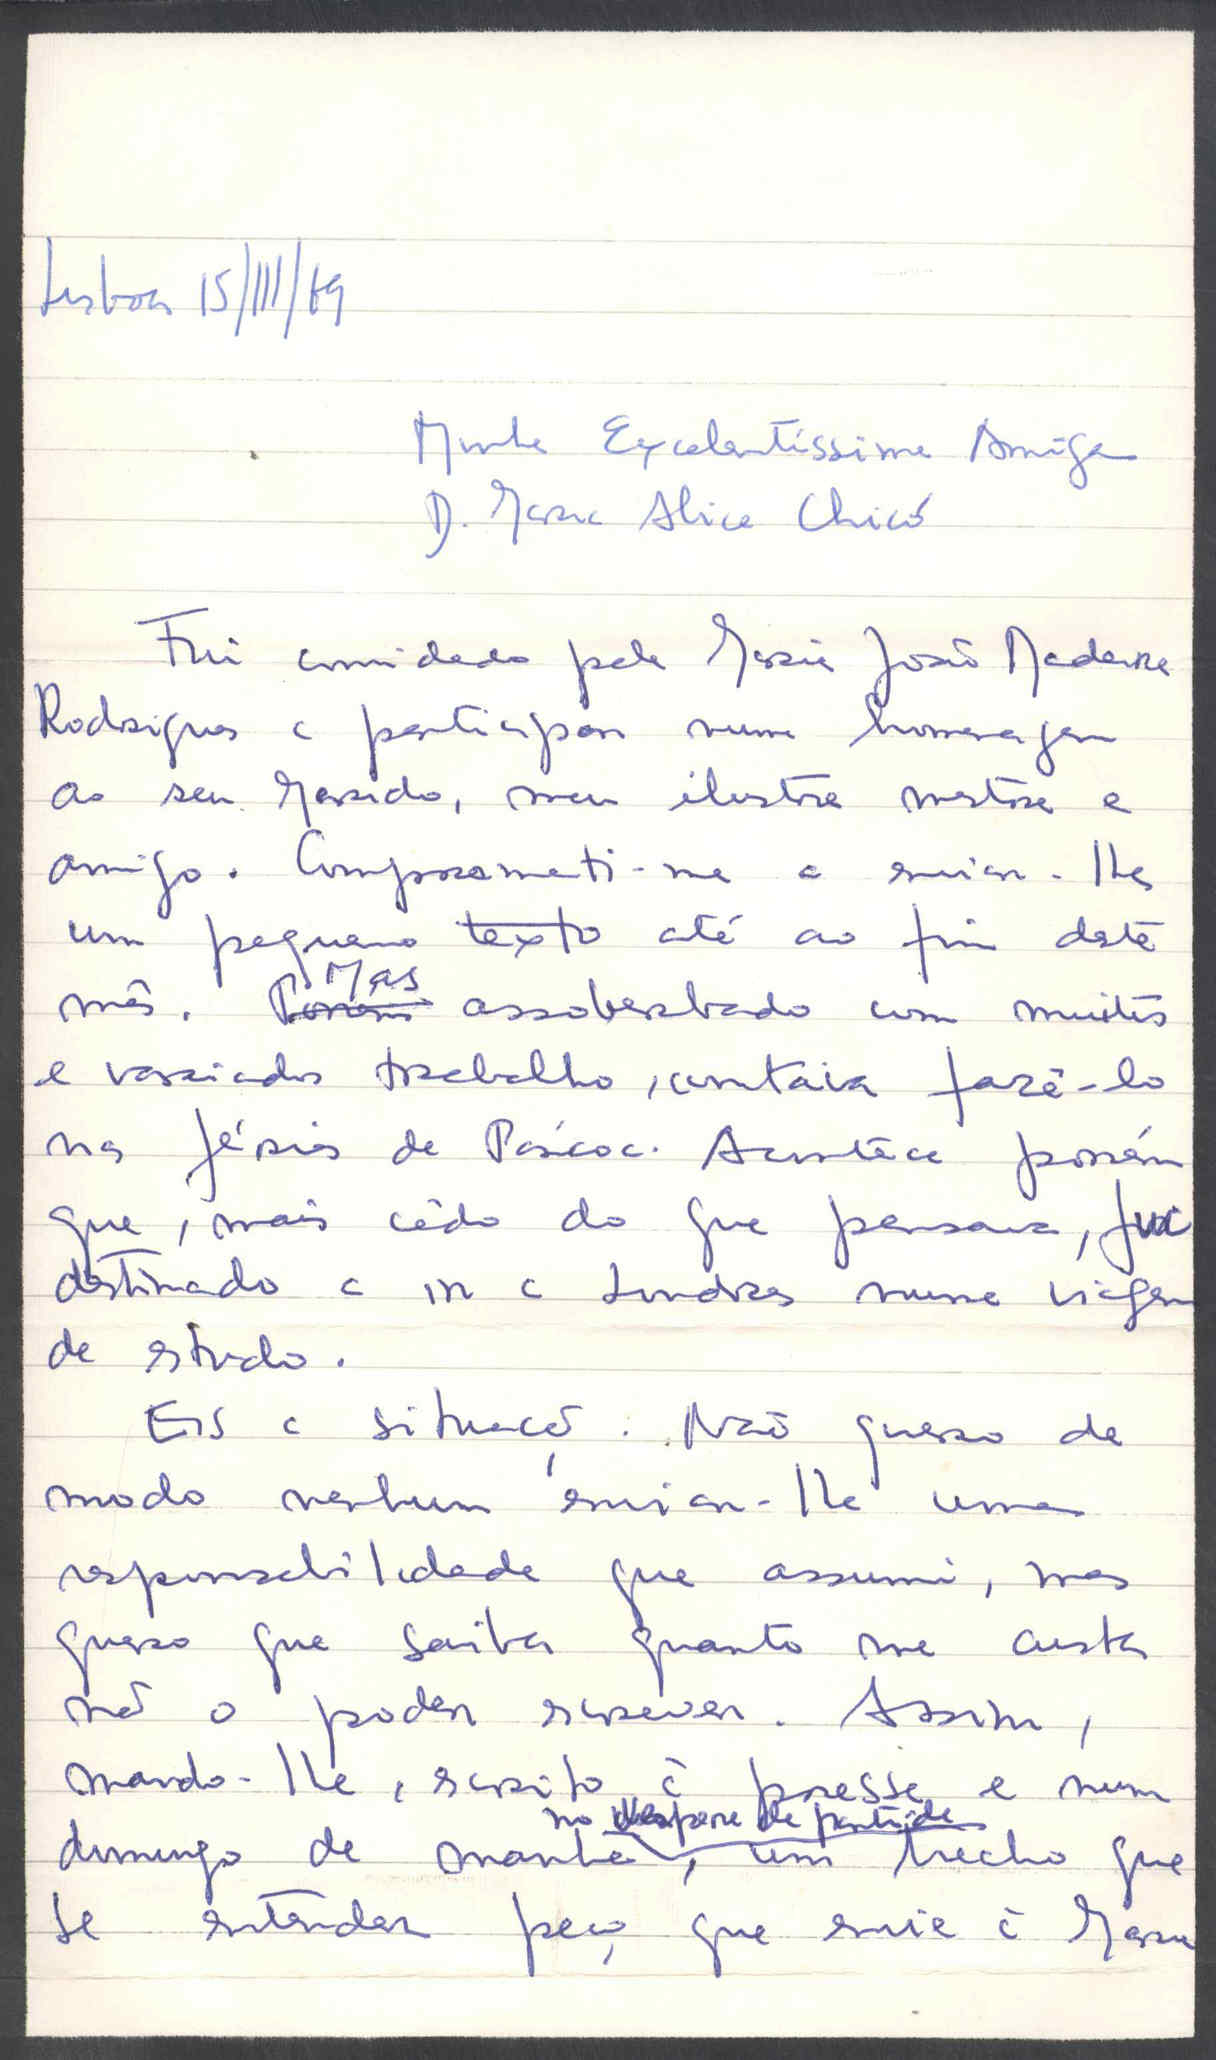 Lisboa 15/III/69
Minha Excelentíssima Amiga
D. Maria Alice Chicó
Fui convidado pela Maria João Madeira
Rodrigues a participar numa homenagem
ao seu Marido, meu ilustre mestre e
amigo. Comprometi-me a enviar-lhes
um pequeno texto até ao fim deste
mês. Porém Mas assoberbado com muitos
e variados trabalho, contava fazê-lo
nas férias de Páscoa. Acontece porém
que, mais cêdo do que pensava, fui
destinado a ir a Londres numa viagem
de estudo.
Eis a situação. Não quero de
modo nenhum enviar-lhe uma
responsabilidade que assumi, mas
quero que saiba quanto me custa
não o poder escrever. Assim,
mando-lhe, escrito à pressa e num
na véspera de partida
domingo de manhã, um trecho que
se entender peço que envie à Maria